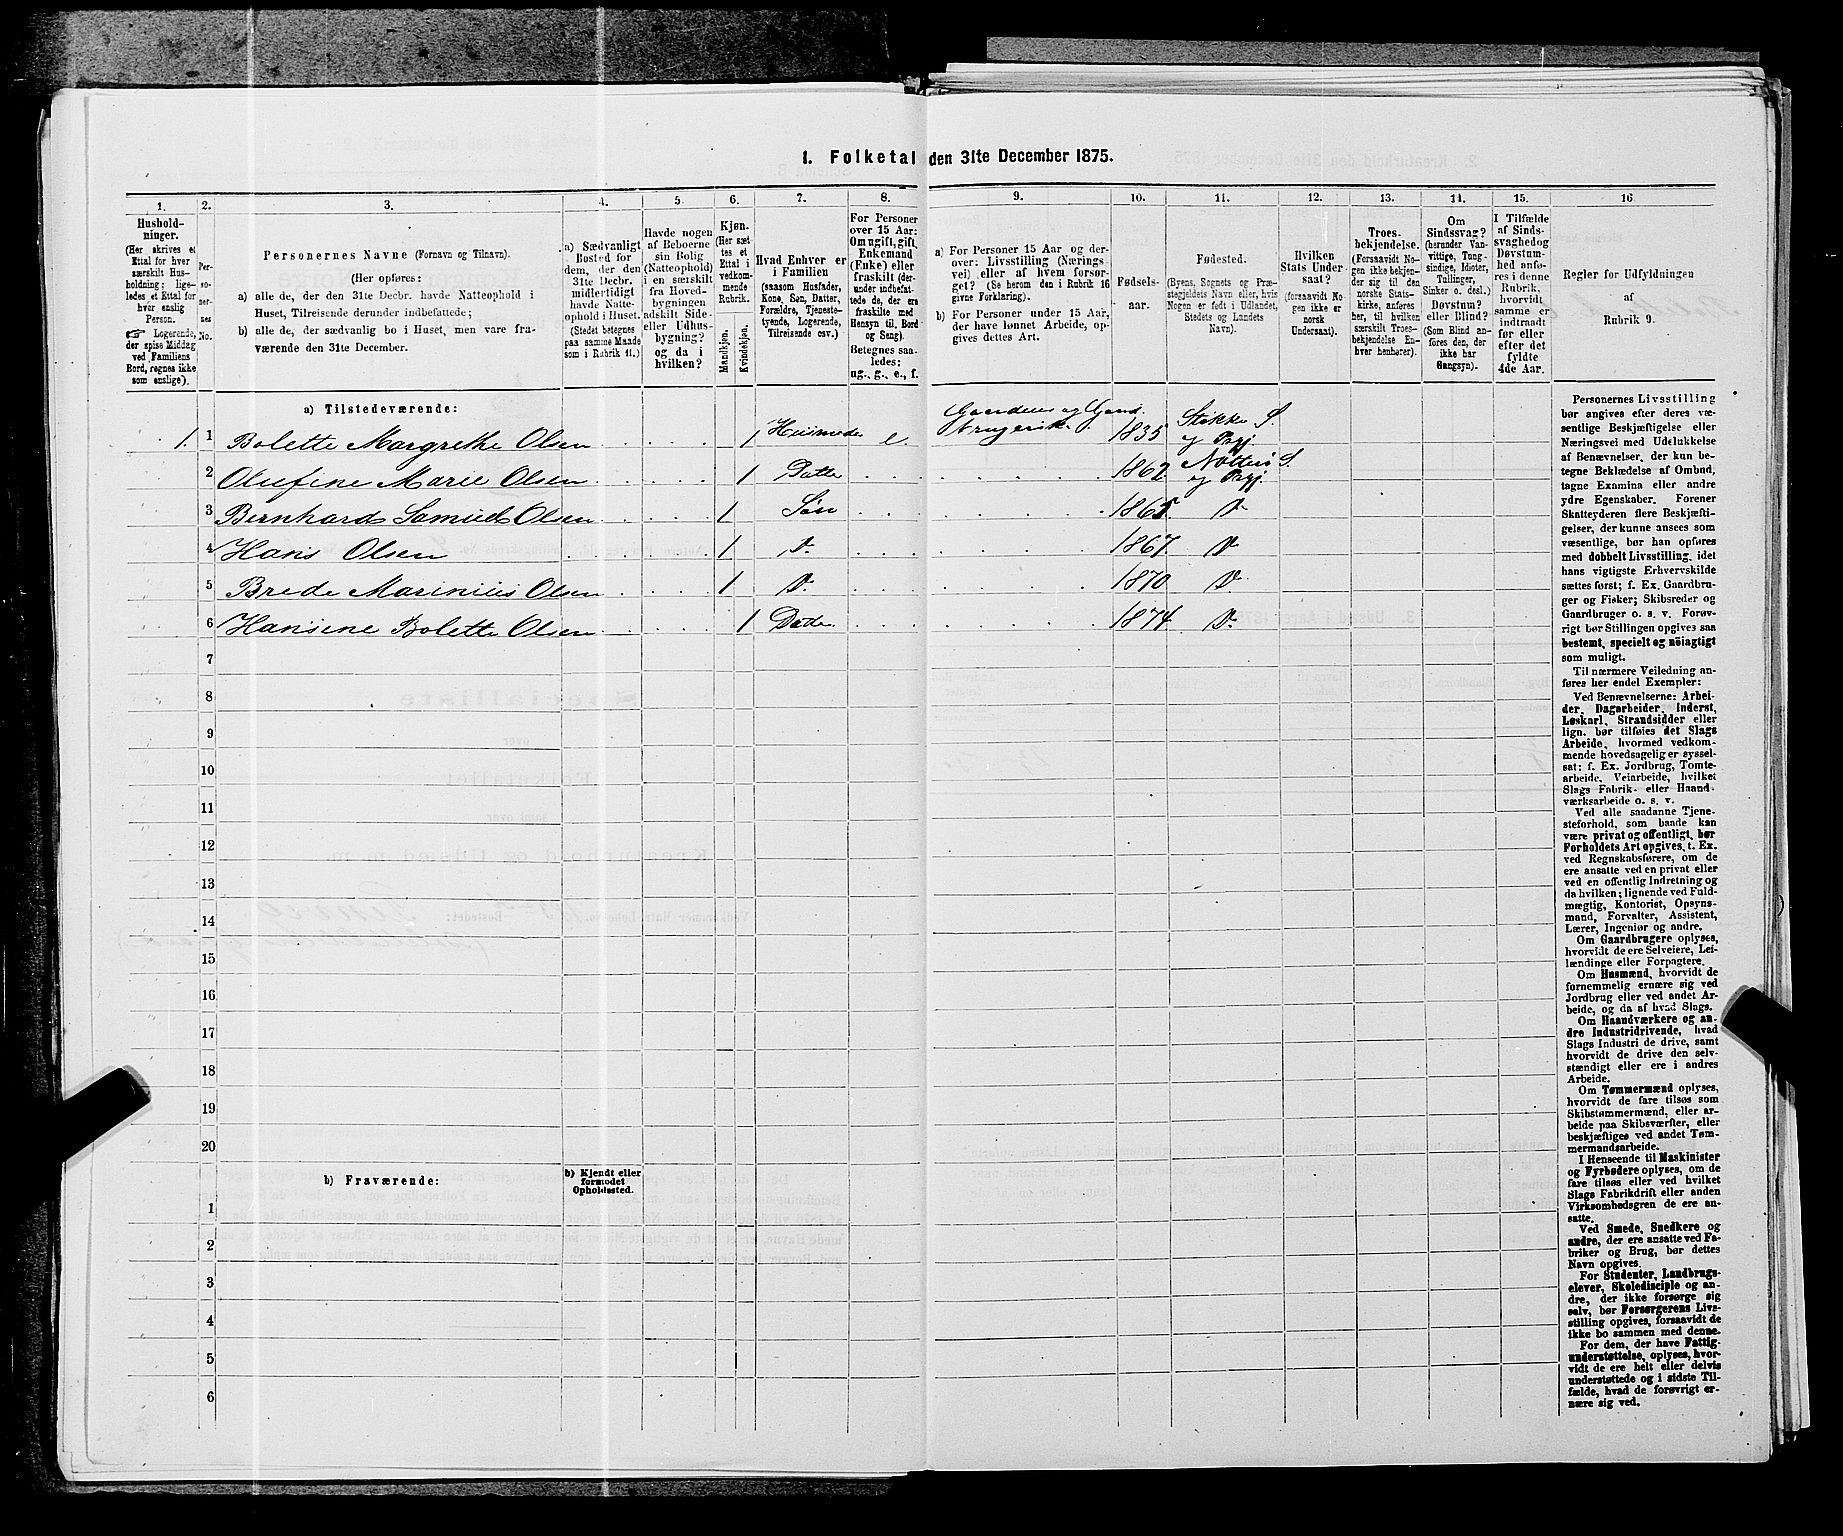 1. Folketal den 31te December 1875.
1.
2.
3.
4.
5.
6.
7.
8.
9.
10.
11.
12.
13.
14.
15.
16
Hushold-
ninger.
(Her skrives et
Ettal for hver
særskilt Hus-
holdning; lige-
ledes et Ettal for
hver enslig
Person.
☞ Logerende,
der spise Middag
ved Familiens
Bord, regnes ikke
som enslige).
Per-
so-
ner-
nes
No.
Personernes Navne (Fornavn og Tilnavn).
(Her opføres:
a) alle de, der den 31te Decbr. havde Natteophold i
Huset, Tilreisende derunder indbefattede;
b) alle de, der sædvanlig bo i Huset, men vare fra-
værende den 31te December.
a) Sædvanligt
Bosted for
dem, der den
31te Decbr.
midlertidigt
havde Natte-
ophold i Huset.
(Stedet betegnes
paa samme Maade
som i Rubrik 11.)
Havde nogen
af Beboerne
sin Bolig
(Natteophold)
i en særskilt
fra Hoved-
bygningen
adskilt Side-
eller Udhus-
bygning?
og da i
hvilken?
Kjøn.
(Her sæt-
tes et
Ettal i
vedkom-
mende
Rubrik.
Mandkjøn.
Kvindekjøn.
Hvad Enhver er
i Familien
(saasom Husfader,
Kone, Søn, Datter,
Forældre, Tjeneste-
tyende, Logerende,
Tilreisende osv.)
For Personer
over 15 Aar:
Om ugift, gift,
Enkemand
(Enke) eller
fraskilt (der-
under indbefat-
tede de, der ere
fraskilte med
Hensyn til, Bord
og Seng).
Betegnes saa-
ledes:
ug., g., e., f.
a) For Personer 15 Aar og der-
over: Livsstilling (Nærings-
vei) eller af hvem forsør-
get? (Se herom den i Rubrik 16
givne Forklaring).
b) For Personer under 15 Aar,
der have lønnet Arbeide, op-
gives dettes Art.
Fødsels-
aar.
Fødested.
(Byens, Sognets og Præ-
stegjeldets Navn eller, hvis
Nogen er født i Udlandet,
Stedets og Landets
Navn).
Hvilken
Stats Under-
saat?
(forsaavidt No-
gen ikke er
norsk
Undersaat).
Troes-
bekjendelse.
(Forsaavidt No-
gen ikke bekjen-
der sig til den
norske Stats-
kirke, anføres
her, til hvilken
særskilt Troes-
bekjendelse En-
hver henhører).
Om
Sindssvag?
(herunder Van-
vittige, Tung-
sindige, Idioter,
Tullinger,
Sinker o. desl.)
Døvstum?
eller Blind?
(Som Blind an-
føres den, der
ikke har
Gangsyn).
I Tilfælde
af Sinds-
svaghed og
Døvstum-
hed anfø-
res i denne
Rubrik,
hvorvidt
samme er
indtraadt
før eller
efter det
fyldte
4de Aar.
Regler for Udfyldningen
af
Rubrik 9.
a) Tilstedeværende:
1. 1 Bolette Margrethe Olsen 1 Huusmoder e. Gaardeier og Gaard-
brugerske. 1835 Stokke S.
og Prgj.
2 Olufine Marie Olsen 1 Datter 1862 Nøtterø S.
og Prgj.
3 Bernhard Samuel Olsen 1 Søn 1865 D
4 Hans Olsen 1 D. 1867 D
5 Brede Marinius Olsen 1 D. 1870 D.
6 Hansine Bolette Olsen 1 1874 D.
7
8
9
10
11
12
13
14
15
16
17
18
19
20
b) Fraværende:
b) Kjendt eller
formodet
Opholdssted.
1
2
3
4
5
6
Personernes Livsstilling
bør angives efter deres væ-
sentlige Beskjæftigelse eller
Næringsvei med Udelukkelse
af Benævnelser, der kun be-
tegne Beklædelse af Ombud,
tagne Examina eller andre
ydre Egenskaber. Forener
Skatteyderen flere Beskjæfti-
gelser, der kunne ansees som
væsentlige, bør han opføres
med dobbelt Livsstilling, idet
hans vigtigste Erhvervskilde
sættes først; f. Ex. Gaardbru-
ger og Fisker; Skibsreder og
Gaardbruger o. s. v. Forøv-
rigt bør Stillingen opgives saa
bestemt, specielt og nöiagtigt
som muligt.
Til nærmere Veiledning an-
føres her endel Exempler:
Ved Benævnelserne: Arbei-
der, Dagarbeider, Inderst,
Løskarl, Strandsidder eller
lign. bør tilføies det Slags
Arbeide, hvormed vedkom-
mende hovedsagelig er syssel-
sat; f. Ex. Jordbrug, Tomte-
arbeide, Veiarbeide, hvilket
Slags Fabrik- eller Haand-
værksarbeide o. s. v.
Ved alle saadanne Tjene-
steforhold, som baade kan
være privat og offentligt, bør
Forholdets Art opgives, t. Ex.
ved Regnskabsførere, om de
ere ansatte ved en privat eller
ved en offentlig Indretning og
da hvilken; lignende ved Fuld-
mægtig, Kontorist, Opsyns-
mand, Forvalter, Assistent,
Lærer, Ingeniør og andre.
Om Gaardbrugere oplyses,
hvorvidt de ere Selveiere, Lei-
lændinge eller Forpagtere.
Om Husmænd, hvorvidt de
fornemmelig ernære sig ved
Jordbrug eller ved andet Ar-
beide, og da af hvad Slags.
Om Haandværkere og an-
dre Industridrivende, hvad
Slags Industri de drive, samt
hvorvidt de drive den selv-
stændigt eller ere i andres
Arbeide.
Om Tømmermænd oplyses,
hvorvidt de fare tilsøs som
Skibstømmermænd, eller ar-
beide paa Skibsværfter, eller
beskjæftiges ved andet Tøm-
mermandsarbeide.
I Henseende til Maskinister
og Fyrbødere oplyses, om de
fare tilsøs eller ved hvilket
Slags Fabrikdrift eller anden
Virksomhedsgren de ere an-
satte.
Ved Smede, Snedkere og
andre, der ere ansatte ved Fa-
briker og Brug, bør dettes
Navn opgives.
For Studenter, Landbrugs-
elever, Skoledisciple og an-
dre, der ikke forsørge sig
selv, bør Forsørgerens Livs-
stilling opgives, forsaavidt de
ikke bo sammen med denne.
For dem, der have Fattig-
understøttelse, oplyses, hvor-
vidt de ere helt eller delvis
understøttede og i sidste Til-
fælde, hvad de forøvrigt er-
nære sig ved.